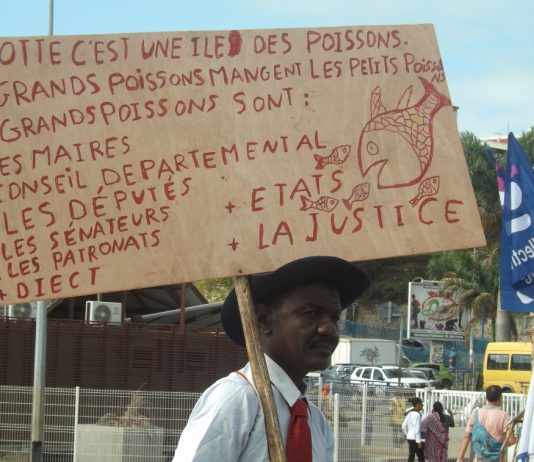 OTTE C'EST UNE ILE DES POISSONS.
GRANDS POISSONS MANGENT LES PETITS POISSONS
GRANDS POISSONS SONT :
ES MAIRES
CONSEIL DEPARTEMENTAL
LES DÉPUTÉS
LES SÉNATEURS
& LES PATRONATS
+ DIECT
+ ETATS
+ LA JUSTICE